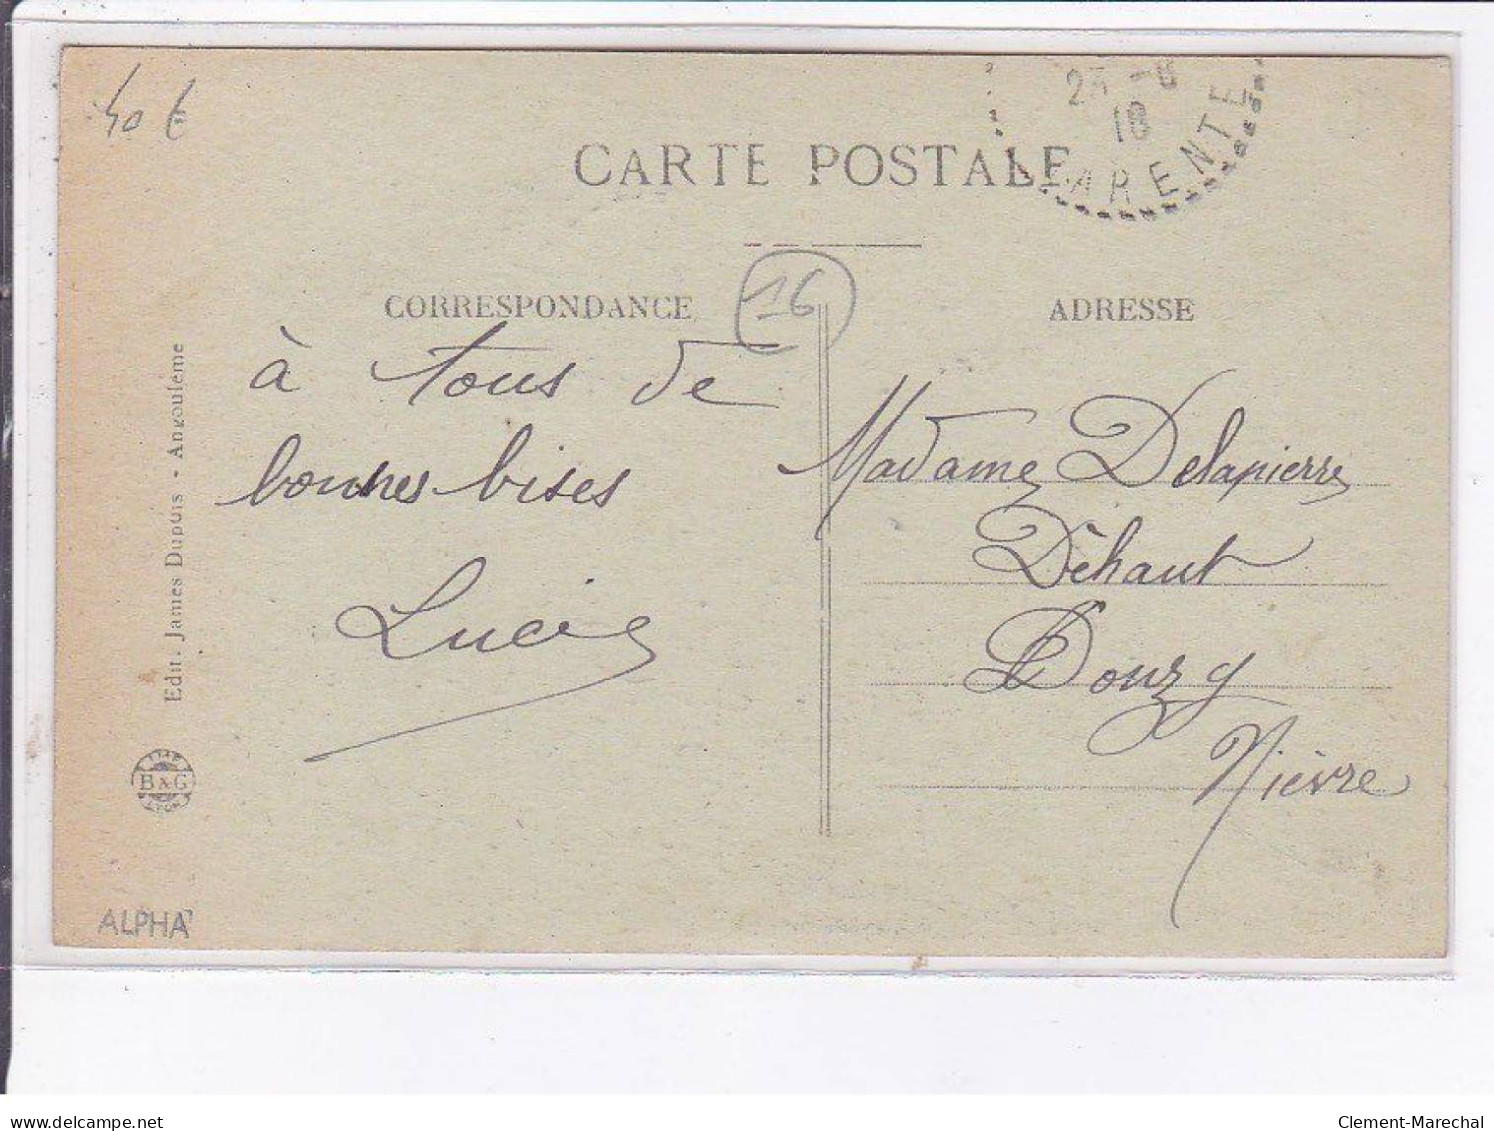 40 €
23 -8
18
ARENTE
CARTE POSTALE
CORRESPONDANCE
16
ADRESSE
à tous de
bonnes bises
Lucie
Madame Delapierre
Dèhaut
Donzy
Nièvre
Edit. James Dupuis - Angoulême
B & G
LYON
ALPHA
delcampe.net
Clement-Marechal